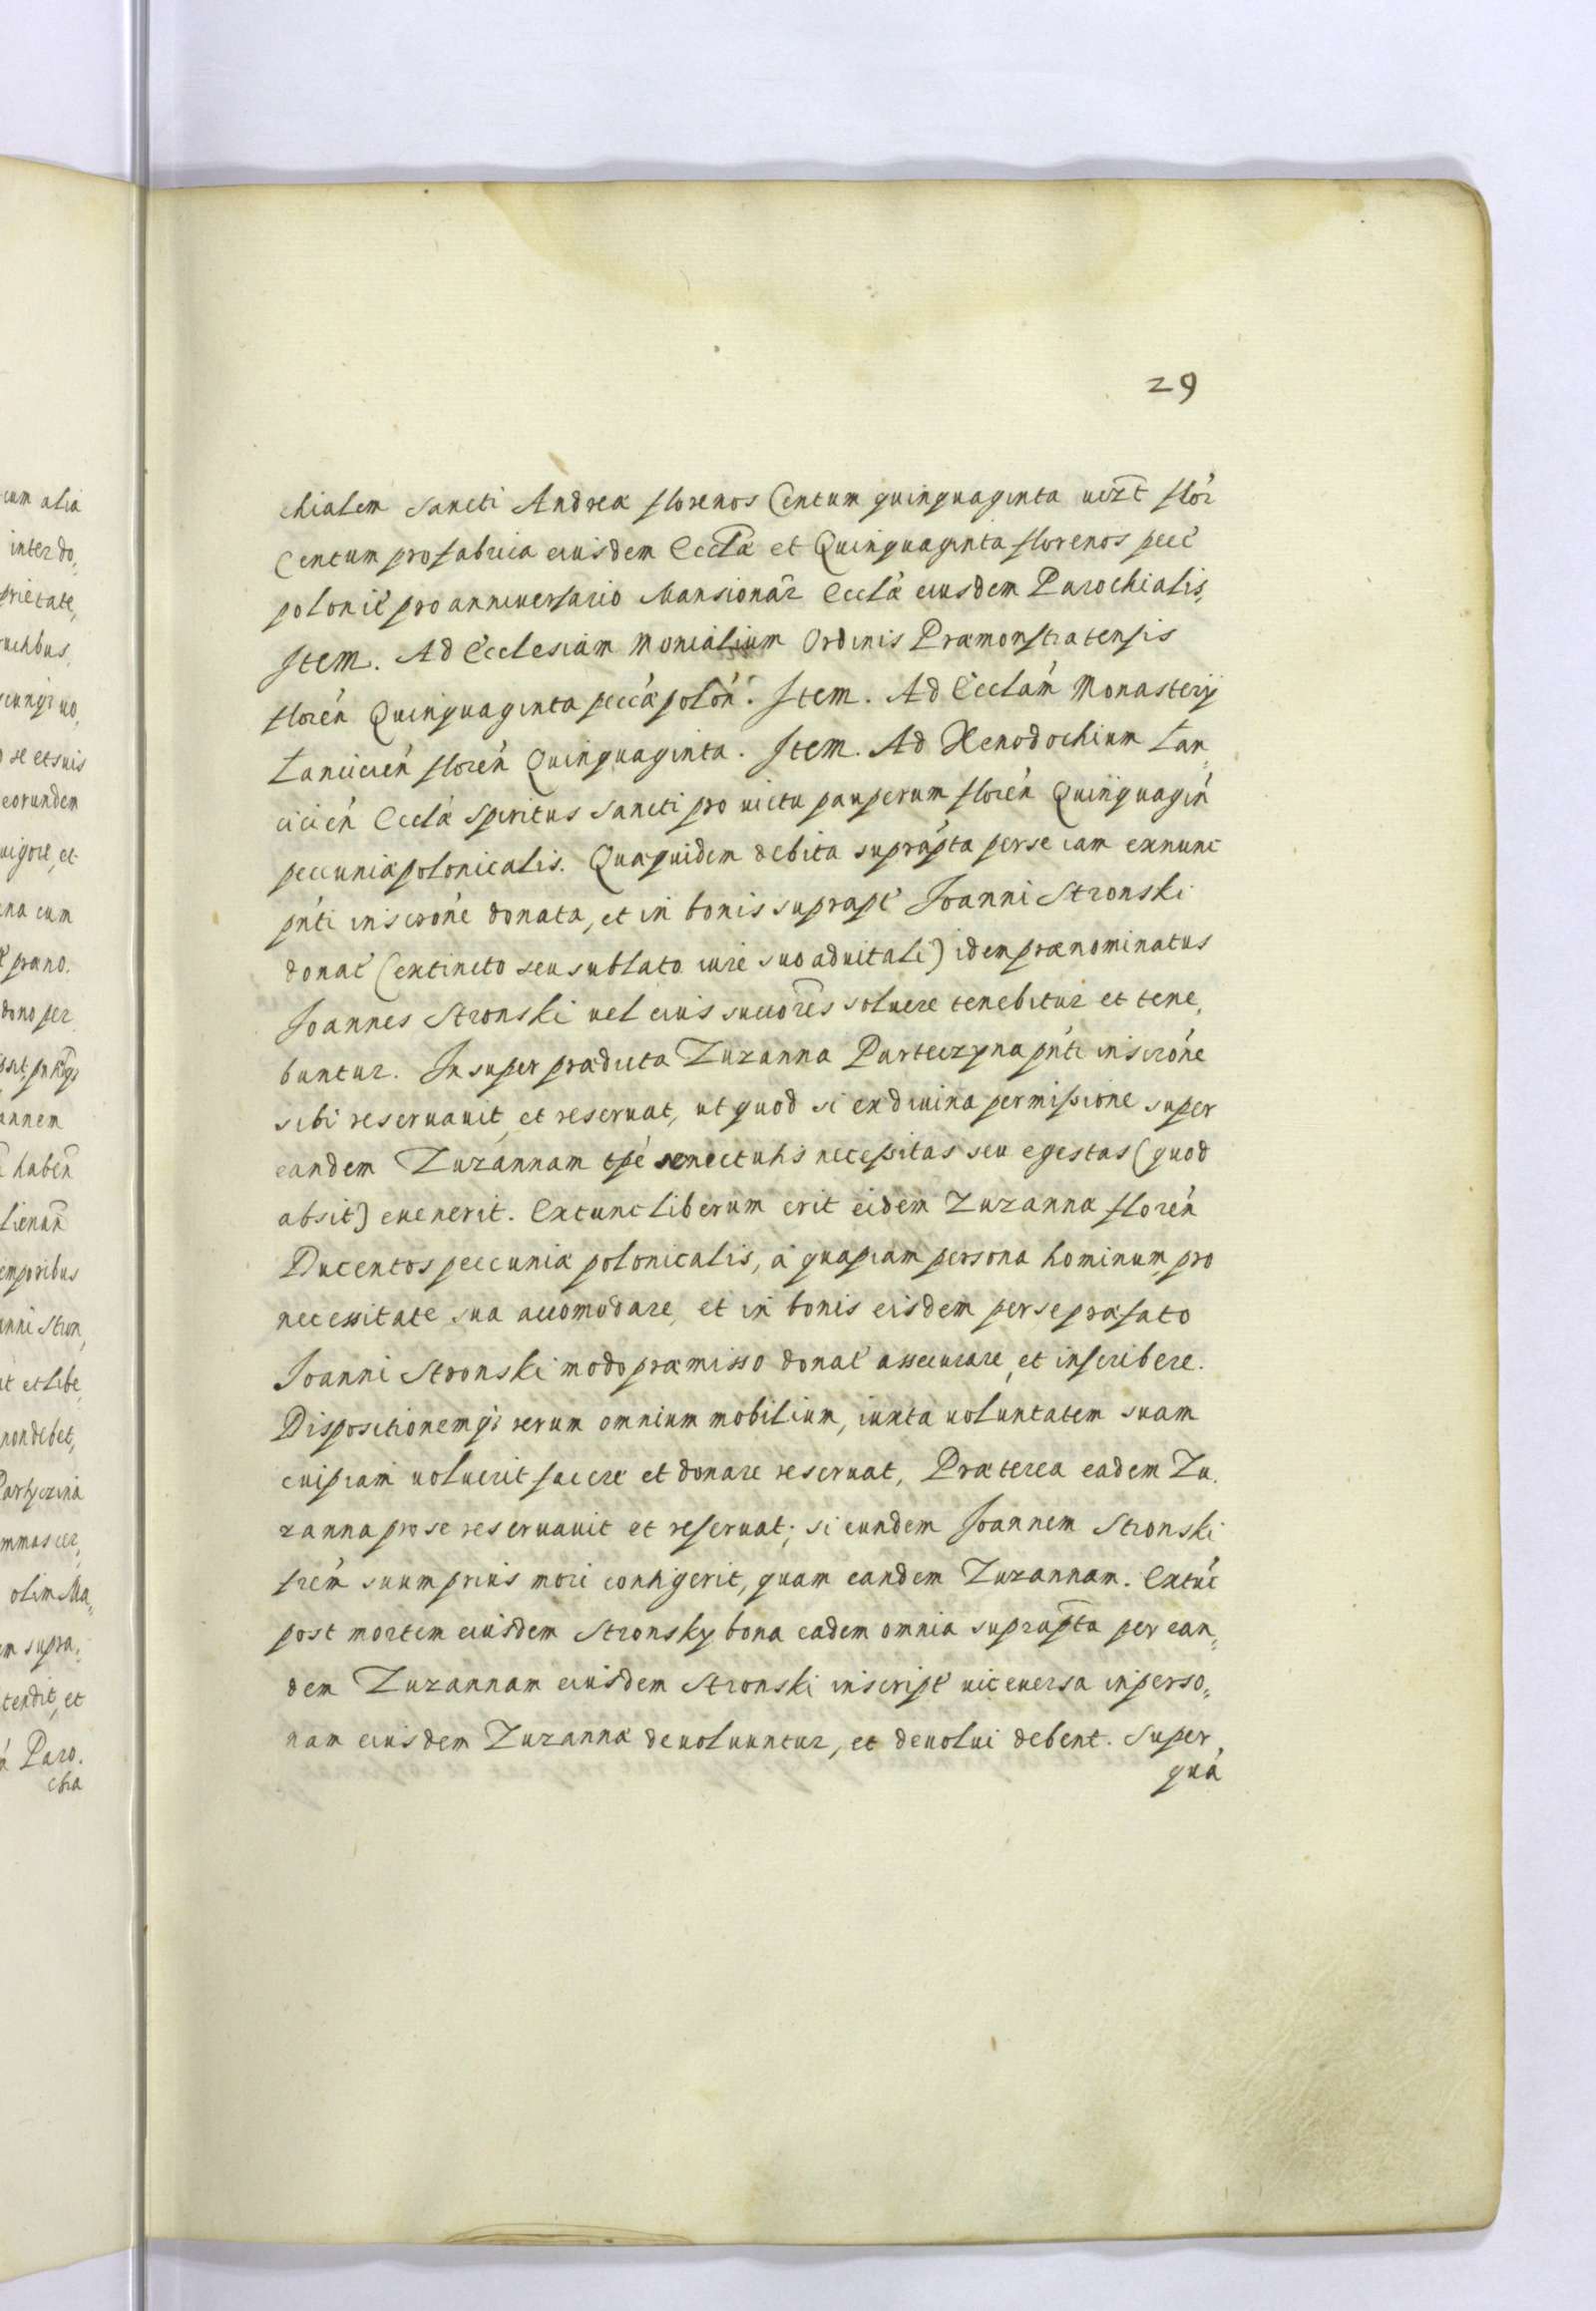 29
chialem sancti Andreæ florenos Centum quinquaginta uizt flor̃
Centum pro fabrica eiusdem Ecclæ et Quinquaginta florenos pecc̃
polonic̃ pro anniuersario Mansionar̃ Ecclæ eiusdem Parochialis,
Item. Ad Ecclesiam Monialium Ordinis Præmonstratensis
floreń Quinquaginta peccæ poloń. Item. Ad Ecclam̃ Monasterÿ
Lancicień floreń Quinquaginta. Item. Ad Xenodochium Lan„
cicień Ecclæ Spiritus Sancti pro uictu pauperum floreń Quinquagiń
pecuniæ polonicalis. Quæquidem debita suprapta per se iam exnunc
pn̄ti inscrone donata, et in bonis suprapt̃ Joanni Stronski
donat̃ (extincto seu sublato iure suo aduitali) idem prænominatus
Joannes Stronski uel eius succores soluere tenebitur et tene,
buntur. Insuper prædicta Zuzanna Parteczyna pn̄ti inscrone
sibi reseruauit et reseruat, ut quod si ex diuina permissione super
eandem Zuzannam tpe senectutis necessitas seu egestas (quod
absit) euenerit. Extunc liberum erit eidem Zuzannæ floreń
Ducentos peccuniæ polonicalis, à quapiam persona hominum pro
necessitate sua accomodare, et in bonis eisdem per se præfato
Joanni Stronski modo præmisso donat̃ assecurare, et inscribere.
Dispositionemq́ rerum omnium mobilium, iuxta uoluntatem suam
cuipiam uoluerit facere et donare reseruat, Præterea eadem Zu,
zanna pro se reseruauit et reseruat; si eundem Joannem Stronski
frem̃ suum prius mori contigerit, quam eandem Zuzannam. Extuc̃
post mortem eiusdem Stronsky bona eadem omnia suprapta per ean„
dem Zuzannam eiusdem Stronski inscript̃ uice uersa in perso„
nam eiusdem Zuzannæ deuoluuntur, et deuolui debent. Super
qua